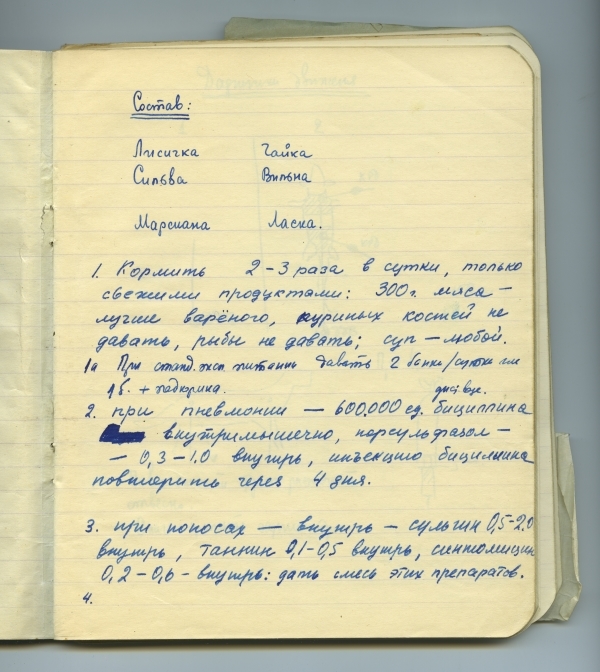 Состав:
Лисичка Чайка
Сильва Вильна
Марсиана Ласка.
1. Кормить 2–3 раза в сутки, только
свежими продуктами: 300 г. мяса –
лучше варёного, куриных костей не
давать, рыбы не давать; суп – любой.
1а При станд. эксп. питании давать 2 банки/сутки или
1 б. + подкормка.
2. при пневмонии – 600.000 ед. бициллина
внутримышечно, норсульфазол –
– 0,3–1.0 внутрь, инъекцию бициллина
повторить через 4 дня.
3. при поносах – внутрь – сульгин 0,5–2.0
внутрь, таннин 0,1–0,5 внутрь, синтомицин
0,2–0,6 – внутрь: дать смесь этих препаратов.
4.